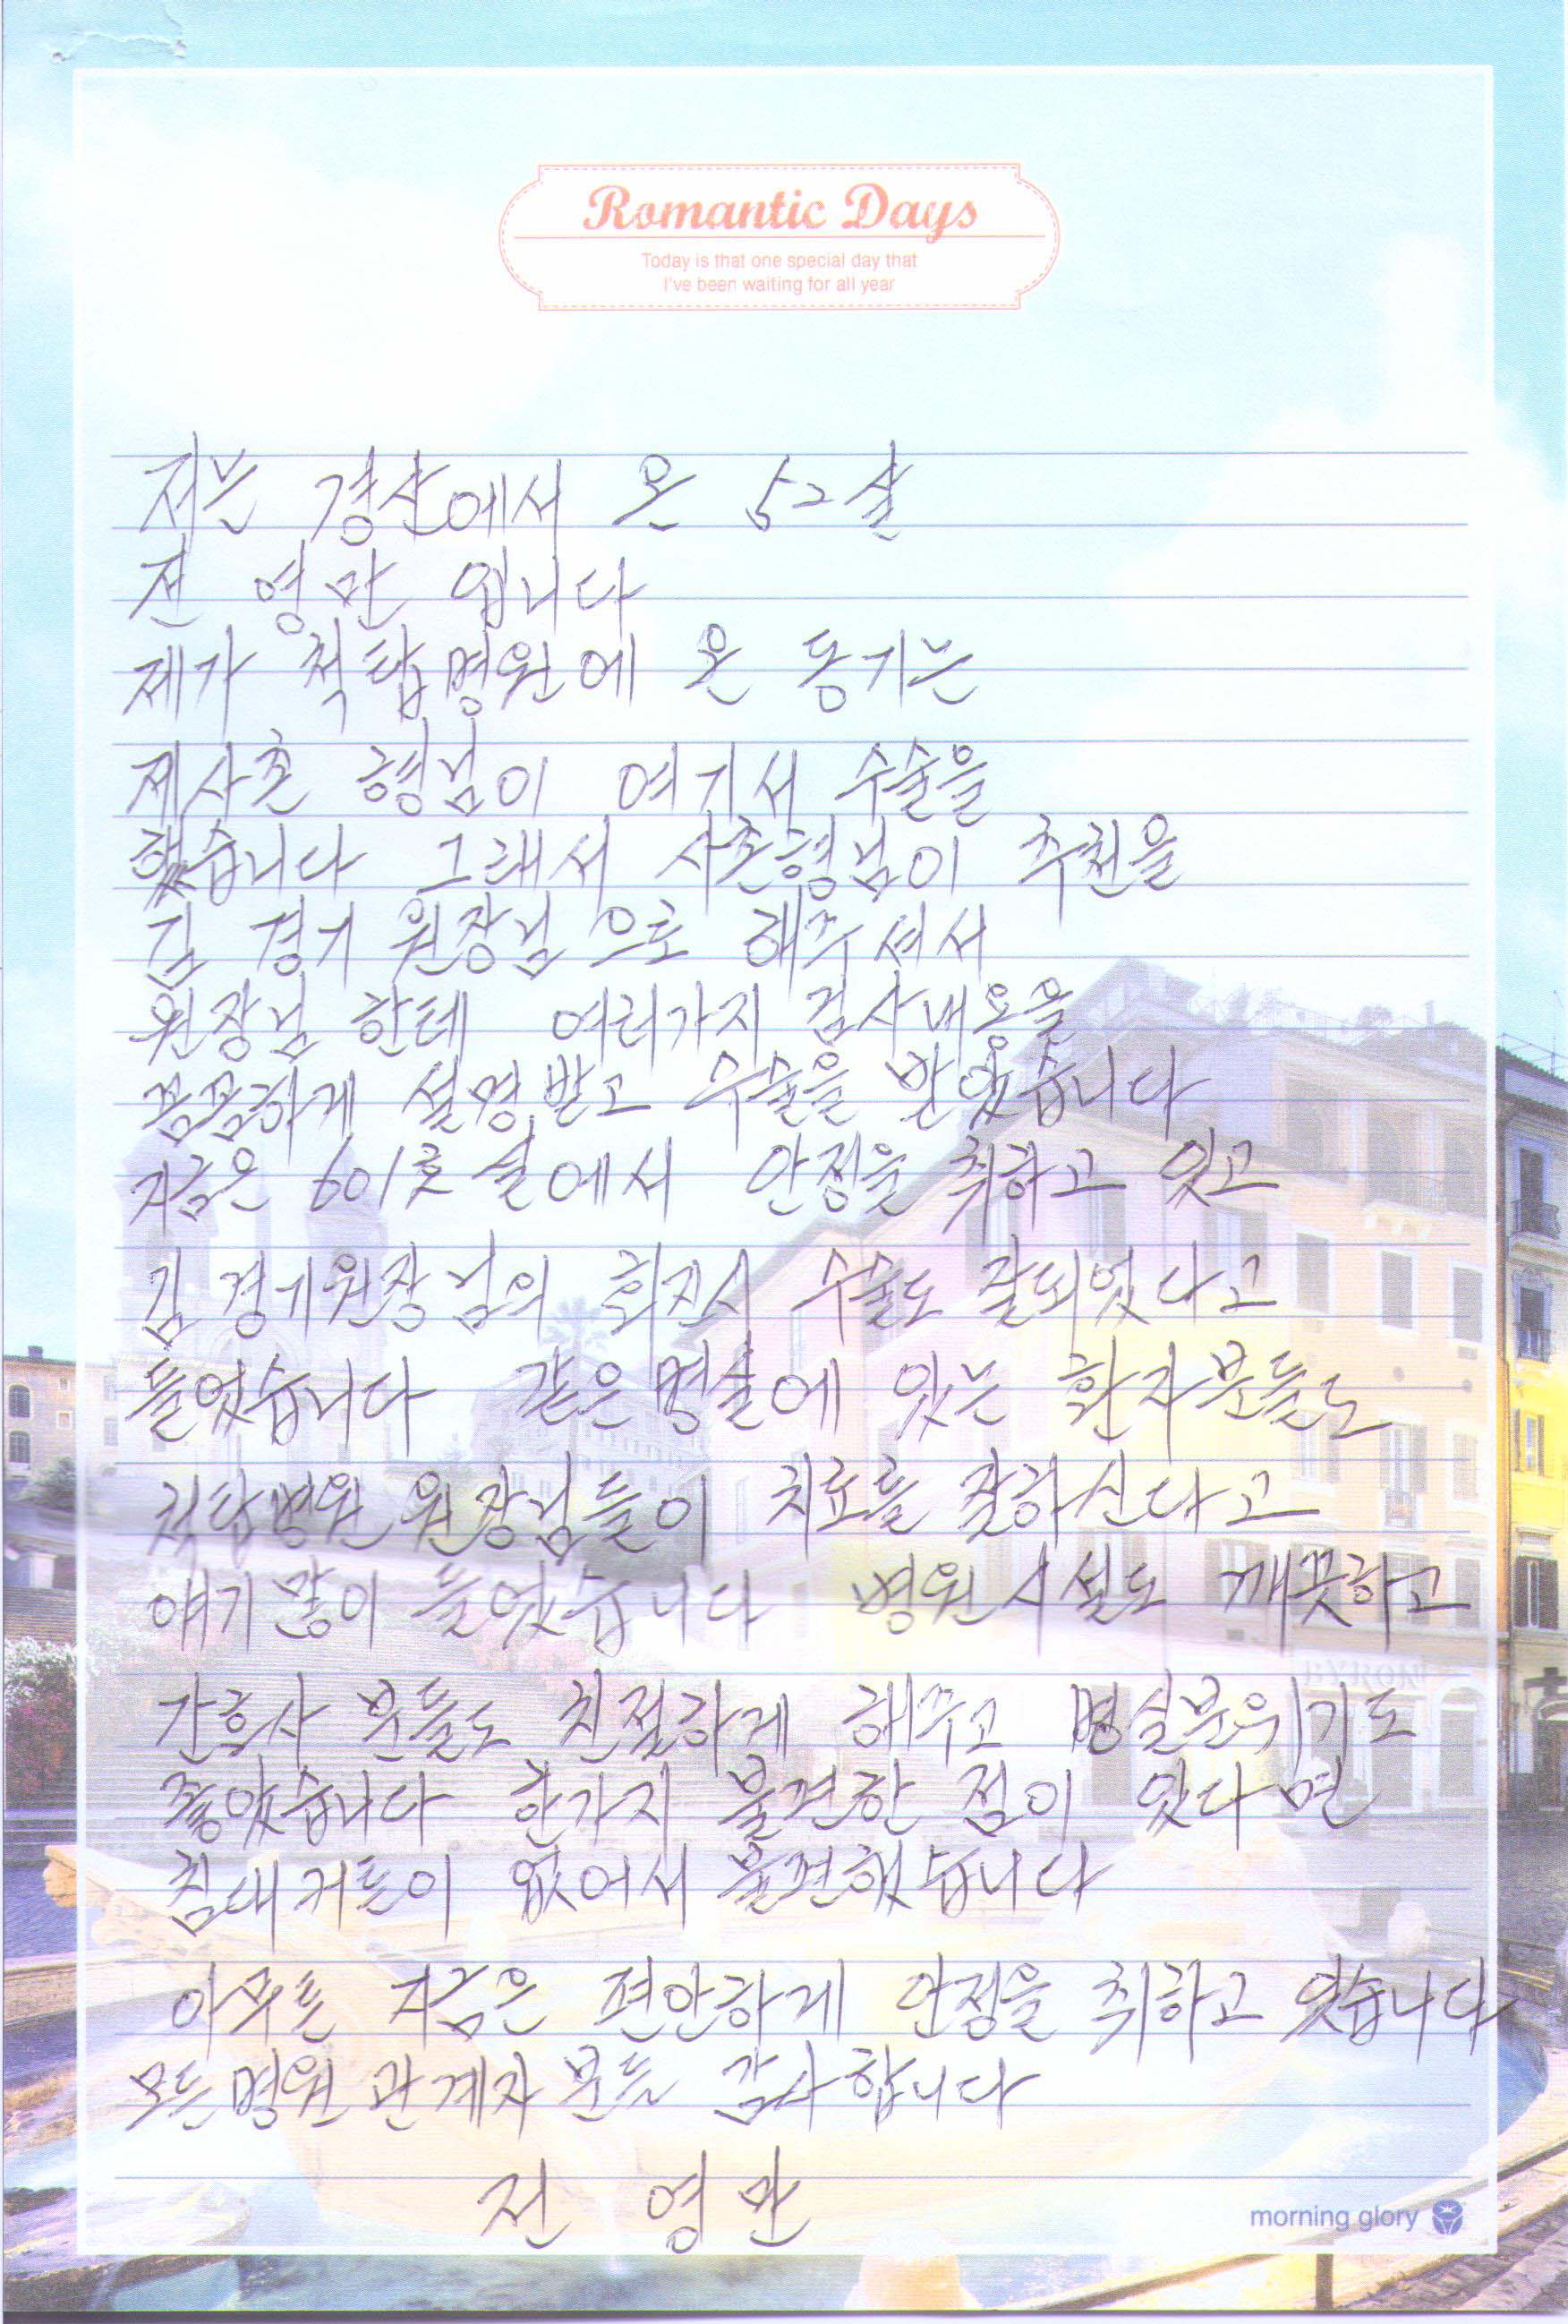 Romantic Days
Today is that one special day that
I've been waiting for all year
저는 경산에서 온 52살
전 영만 입니다
제가 척탑병원에 온 동기는
제사촌 형님이 여기서 수술을
했습니다 그래서 사촌형님이 추천을
김 경기 원장님으로 해주셔서
원장님 한테 여러가지 검사내용을
꼼꼼하게 설명받고 수술을 받았습니다
지금은 601호실에서 안정을 취하고 있고
김 경기원장님의 회진시 수술도 잘되었다고
들었습니다 같은병실에 있는 환자분들도
척탑병원 원장님들이 치료를 잘하신다고
얘기많이 들었습니다 병원시설도 깨끗하고
간호사 분들도 친절하게 해주고 병실분위기도
좋았습니다 한가지 불편한 점이 있다면
침대커튼이 없어서 불편했습니다
아무튼 지금은 편안하게 안정을 취하고 있습니다
모든병원 관계자 분들 감사합니다
전 영만
morning glory